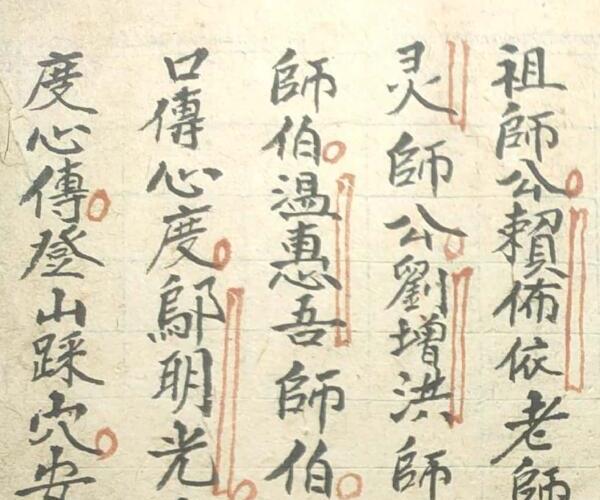 祖師公賴佈依老師
灵師公劉增洪師
師伯溫惠吾師伯
口傳心度鄔明光
度心傳登山踩穴安